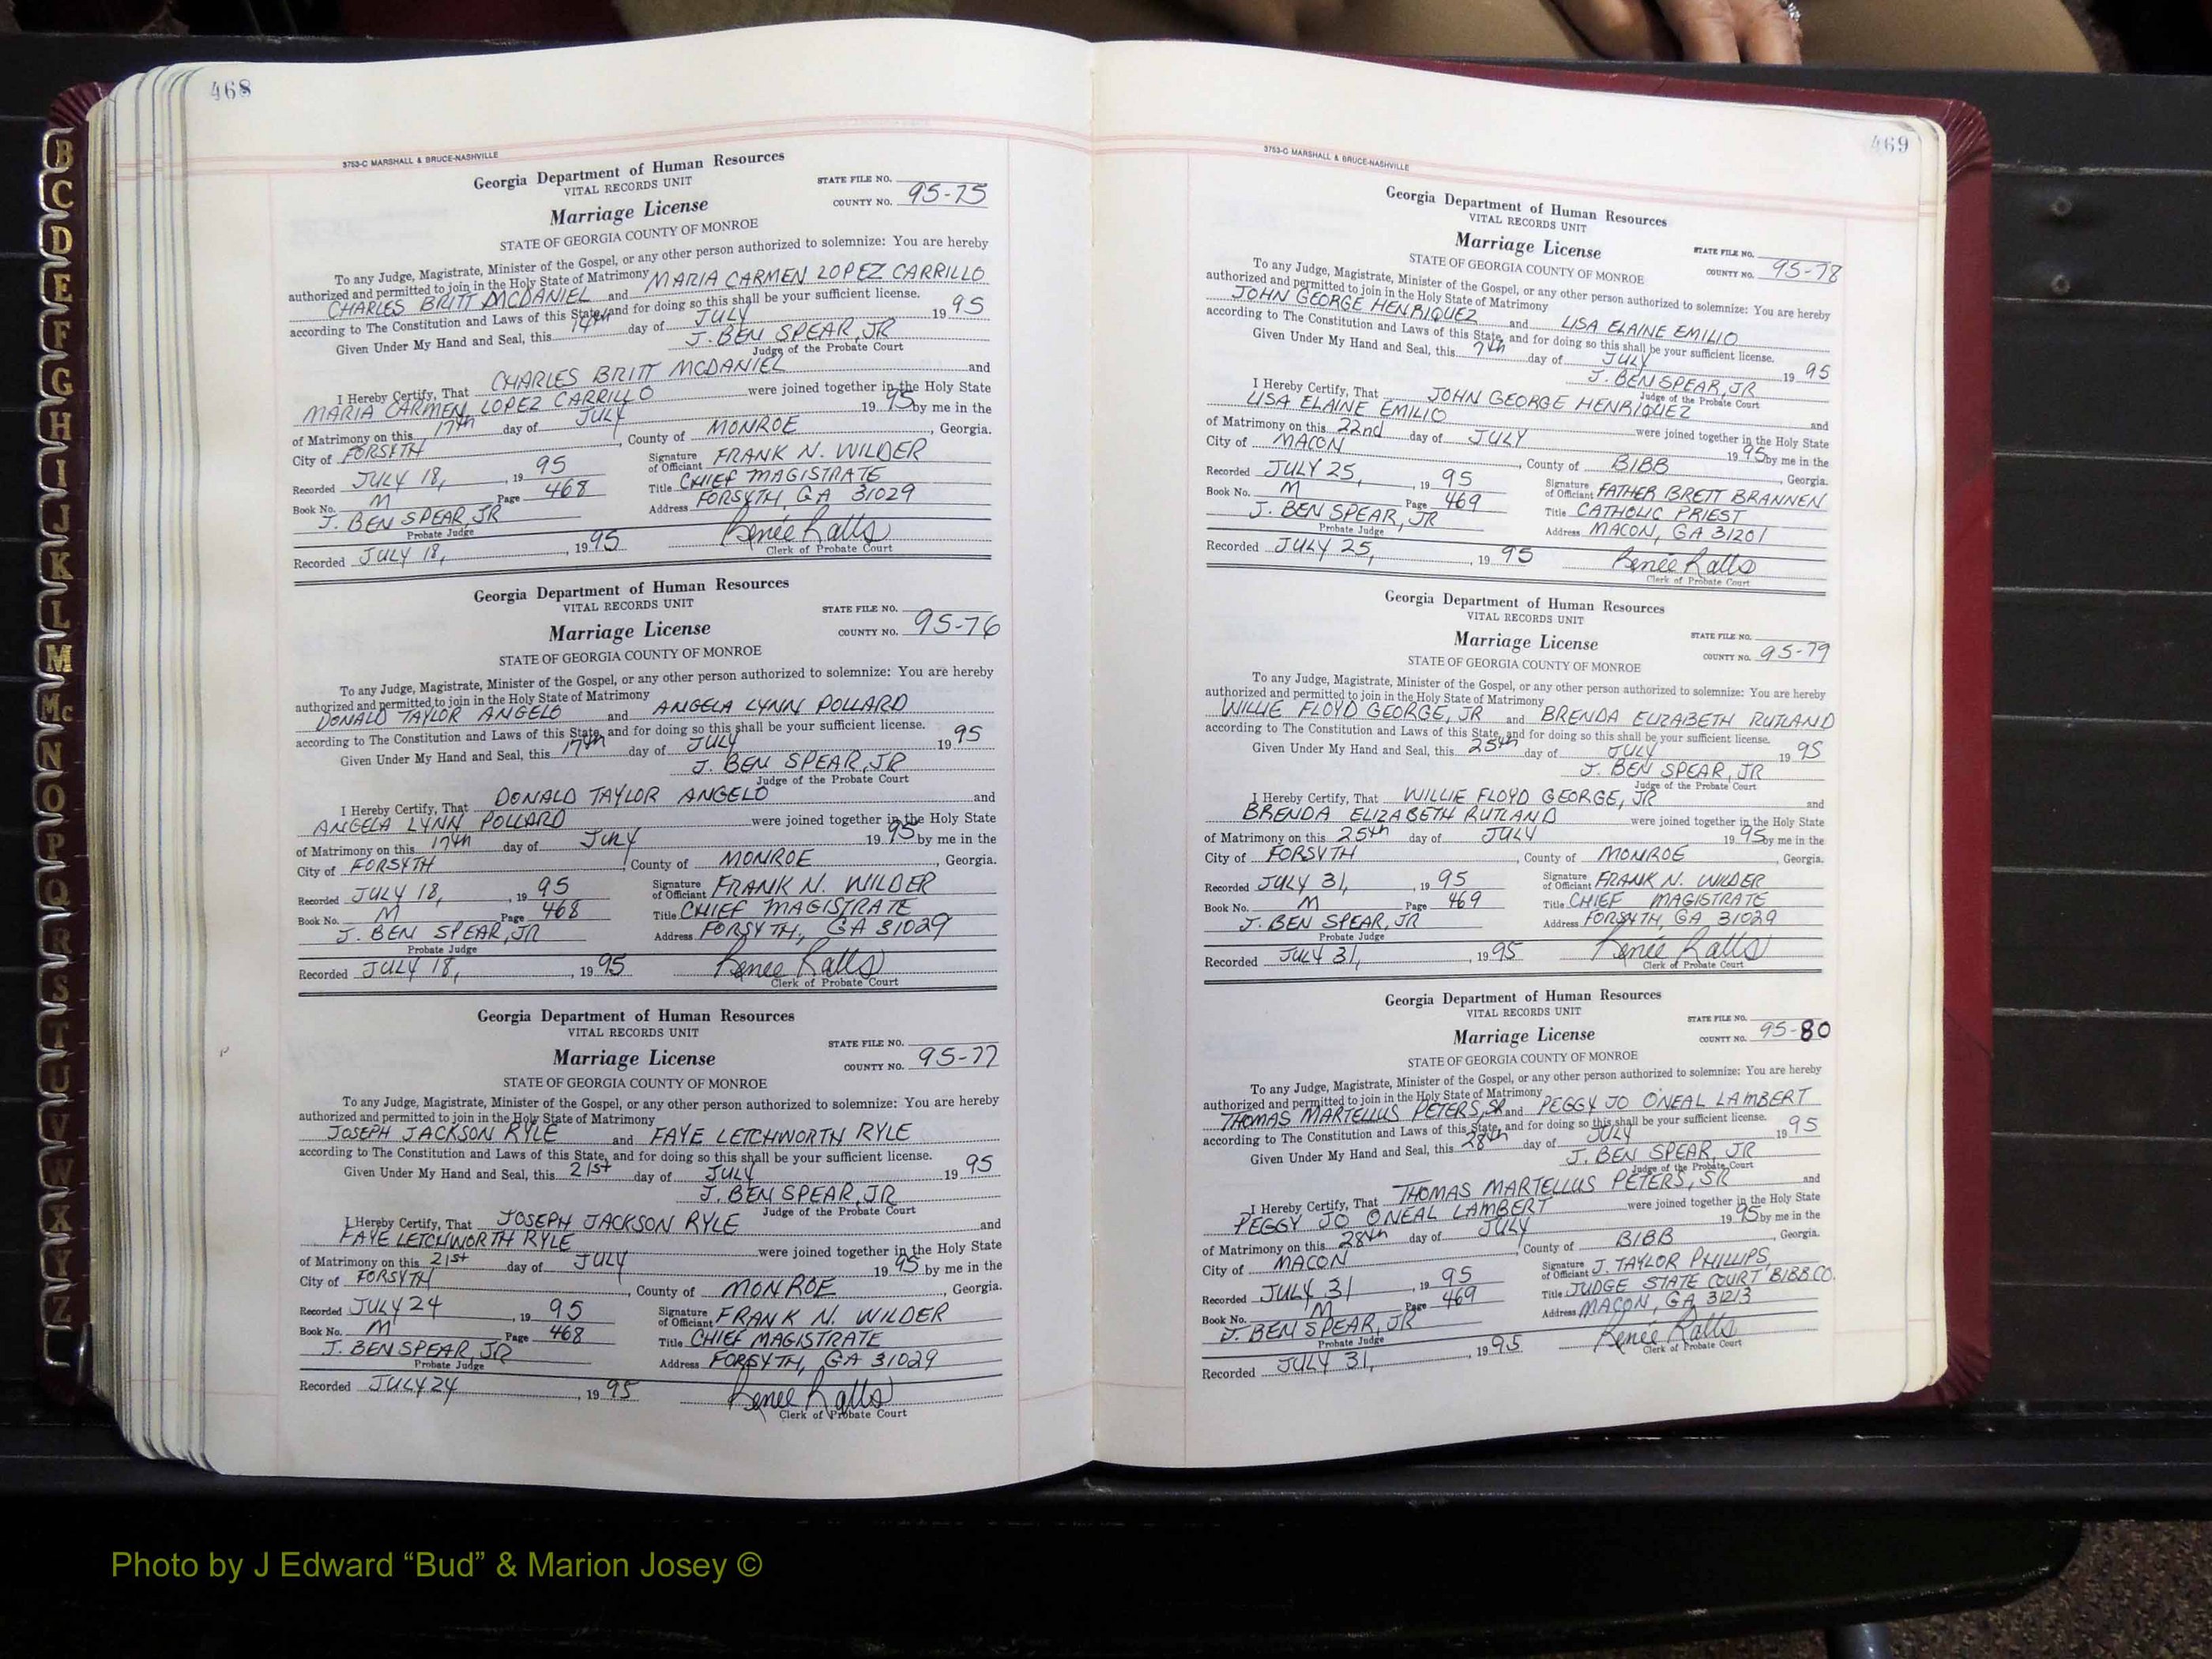 B
C
D
E
F
G
H
I
J
K
L
M
Mc
N
O
P
Q
R
S
T
U
V
W
X
Y
Z
468
3753-C MARSHALL & BRUCE-NASHVILLE
Georgia Department of Human Resources
VITAL RECORDS UNIT
STATE FILE NO.
Marriage License
COUNTY NO. 95-75
STATE OF GEORGIA COUNTY OF MONROE
To any Judge, Magistrate, Minister of the Gospel, or any other person authorized to solemnize: You are hereby
authorized and permitted to join in the Holy State of Matrimony
CHARLES BRITT MCDANIEL and MARIA CARMEN LOPEZ CARRILLO
according to The Constitution and Laws of this State, and for doing so this shall be your sufficient license.
Given Under My Hand and Seal, this 14th day of JULY 1995
J. BEN SPEAR, JR
Judge of the Probate Court
I Hereby Certify, That CHARLES BRITT MCDANIEL and
MARIA CARMEN LOPEZ CARRILLO were joined together in the Holy State
of Matrimony on this 17th day of JULY 1995 by me in the
City of FORSYTH, County of MONROE, Georgia.
Recorded JULY 18, 1995 Signature of Officiant FRANK N. WILDER
Book No. M Page 468 Title CHIEF MAGISTRATE
J. BEN SPEAR, JR Address FORSYTH, GA 31029
Probate Judge
Recorded JULY 18, 1995 Renée Ralls
Clerk of Probate Court
Georgia Department of Human Resources
VITAL RECORDS UNIT
STATE FILE NO.
Marriage License
COUNTY NO. 95-76
STATE OF GEORGIA COUNTY OF MONROE
To any Judge, Magistrate, Minister of the Gospel, or any other person authorized to solemnize: You are hereby
authorized and permitted to join in the Holy State of Matrimony
DONALD TAYLOR ANGELO and ANGELA LYNN POLLARD
according to The Constitution and Laws of this State, and for doing so this shall be your sufficient license.
Given Under My Hand and Seal, this 17th day of JULY 1995
J. BEN SPEAR, JR
Judge of the Probate Court
I Hereby Certify, That DONALD TAYLOR ANGELO and
ANGELA LYNN POLLARD were joined together in the Holy State
of Matrimony on this 17th day of JULY 1995 by me in the
City of FORSYTH, County of MONROE, Georgia.
Recorded JULY 18, 1995 Signature of Officiant FRANK N. WILDER
Book No. M Page 468 Title CHIEF MAGISTRATE
J. BEN SPEAR, JR Address FORSYTH, GA 31029
Probate Judge
Recorded JULY 18, 1995 Renee Ralls
Clerk of Probate Court
Georgia Department of Human Resources
VITAL RECORDS UNIT
STATE FILE NO.
Marriage License
COUNTY NO. 95-77
STATE OF GEORGIA COUNTY OF MONROE
To any Judge, Magistrate, Minister of the Gospel, or any other person authorized to solemnize: You are hereby
authorized and permitted to join in the Holy State of Matrimony
JOSEPH JACKSON RYLE and FAYE LETCHWORTH RYLE
according to The Constitution and Laws of this State, and for doing so this shall be your sufficient license.
Given Under My Hand and Seal, this 21st day of JULY 1995
J. BEN SPEAR, JR
Judge of the Probate Court
I Hereby Certify, That JOSEPH JACKSON RYLE and
FAYE LETCHWORTH RYLE were joined together in the Holy State
of Matrimony on this 21st day of JULY 1995 by me in the
City of FORSYTH, County of MONROE, Georgia.
Recorded JULY 24, 1995 Signature of Officiant FRANK N. WILDER
Book No. M Page 468 Title CHIEF MAGISTRATE
J. BEN SPEAR, JR Address FORSYTH, GA 31029
Probate Judge
Recorded JULY 24, 1995 Renee Ralls
Clerk of Probate Court
469
3753-C MARSHALL & BRUCE-NASHVILLE
Georgia Department of Human Resources
VITAL RECORDS UNIT
Marriage License STATE FILE NO.
STATE OF GEORGIA COUNTY OF MONROE COUNTY NO. 95-78
To any Judge, Magistrate, Minister of the Gospel, or any other person authorized to solemnize: You are hereby
authorized and permitted to join in the Holy State of Matrimony
JOHN GEORGE HENRIQUEZ and LISA ELAINE EMILIO
according to The Constitution and Laws of this State, and for doing so this shall be your sufficient license.
Given Under My Hand and Seal, this 7th day of JULY 1995
J. BEN SPEAR, JR
Judge of the Probate Court
I Hereby Certify, That JOHN GEORGE HENRIQUEZ and
LISA ELAINE EMILIO were joined together in the Holy State
of Matrimony on this 22nd day of JULY 1995 by me in the
City of MACON, County of BIBB, Georgia.
Recorded JULY 25, 1995 Signature of Officiant FATHER BRETT BRANNEN
Book No. M Page 469 Title CATHOLIC PRIEST
J. BEN SPEAR, JR Address MACON, GA 31201
Probate Judge
Recorded JULY 25, 1995 Renée Ralls
Clerk of Probate Court
Georgia Department of Human Resources
VITAL RECORDS UNIT
Marriage License STATE FILE NO.
STATE OF GEORGIA COUNTY OF MONROE COUNTY NO. 95-79
To any Judge, Magistrate, Minister of the Gospel, or any other person authorized to solemnize: You are hereby
authorized and permitted to join in the Holy State of Matrimony
WILLIE FLOYD GEORGE, JR and BRENDA ELIZABETH RUTLAND
according to The Constitution and Laws of this State, and for doing so this shall be your sufficient license.
Given Under My Hand and Seal, this 25th day of JULY 1995
J. BEN SPEAR, JR
Judge of the Probate Court
I Hereby Certify, That WILLIE FLOYD GEORGE, JR and
BRENDA ELIZABETH RUTLAND were joined together in the Holy State
of Matrimony on this 25th day of JULY 1995 by me in the
City of FORSYTH, County of MONROE, Georgia.
Recorded JULY 31, 1995 Signature of Officiant FRANK N. WILDER
Book No. M Page 469 Title CHIEF MAGISTRATE
J. BEN SPEAR, JR Address FORSYTH, GA 31029
Probate Judge
Recorded JULY 31, 1995 Renée Ralls
Clerk of Probate Court
Georgia Department of Human Resources
VITAL RECORDS UNIT
Marriage License STATE FILE NO.
STATE OF GEORGIA COUNTY OF MONROE COUNTY NO. 95-80
To any Judge, Magistrate, Minister of the Gospel, or any other person authorized to solemnize: You are hereby
authorized and permitted to join in the Holy State of Matrimony
THOMAS MARTELLUS PETERS, SR and PEGGY JO ONEAL LAMBERT
according to The Constitution and Laws of this State, and for doing so this shall be your sufficient license.
Given Under My Hand and Seal, this 28th day of JULY 1995
J. BEN SPEAR, JR
Judge of the Probate Court
I Hereby Certify, That THOMAS MARTELLUS PETERS, SR and
PEGGY JO ONEAL LAMBERT were joined together in the Holy State
of Matrimony on this 28th day of JULY 1995 by me in the
City of MACON, County of BIBB, Georgia.
Recorded JULY 31, 1995 Signature of Officiant J. TAYLOR PHILLIPS
Book No. M Page 469 Title JUDGE STATE COURT BIBB CO.
J. BEN SPEAR, JR Address MACON, GA 31213
Probate Judge
Recorded JULY 31, 1995 Renée Ralls
Clerk of Probate Court
Photo by J Edward “Bud” & Marion Josey ©